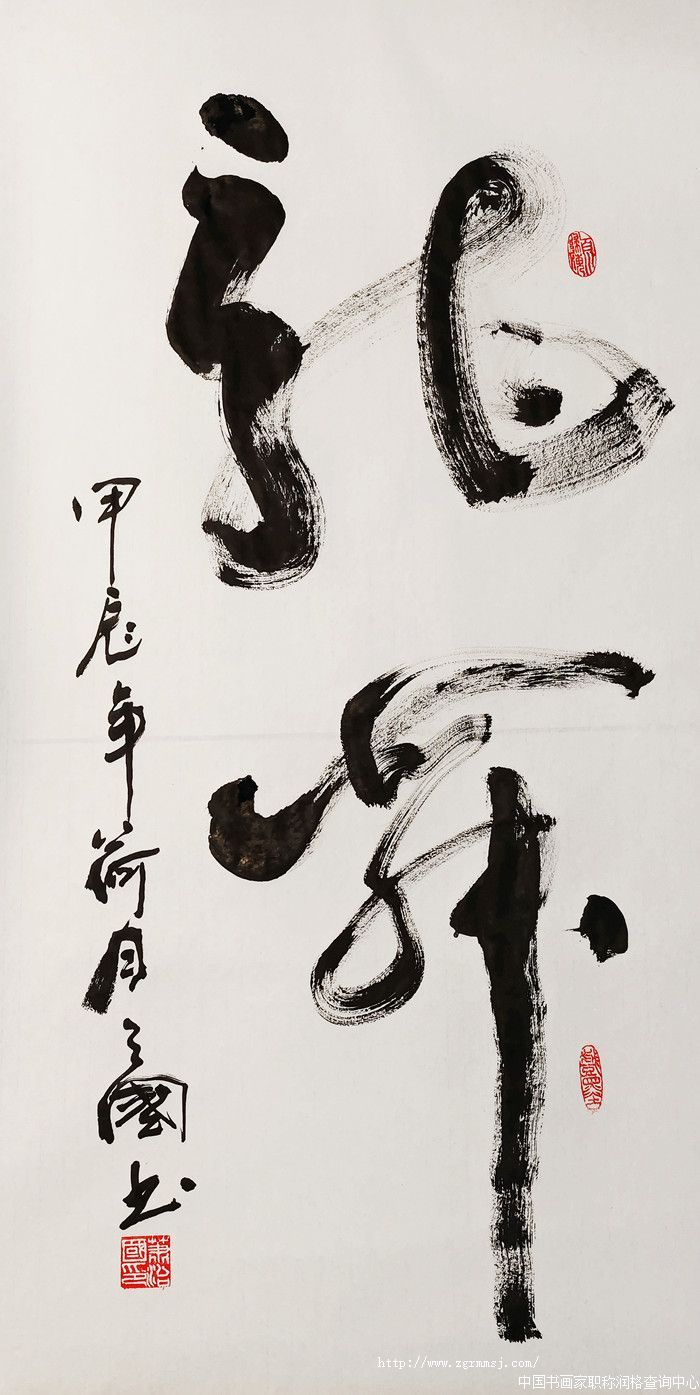 龍舞
甲辰年荷月治國书
蕭治國印
http://www.zgrmmsj.com/
中国书画家职称润格查询中心